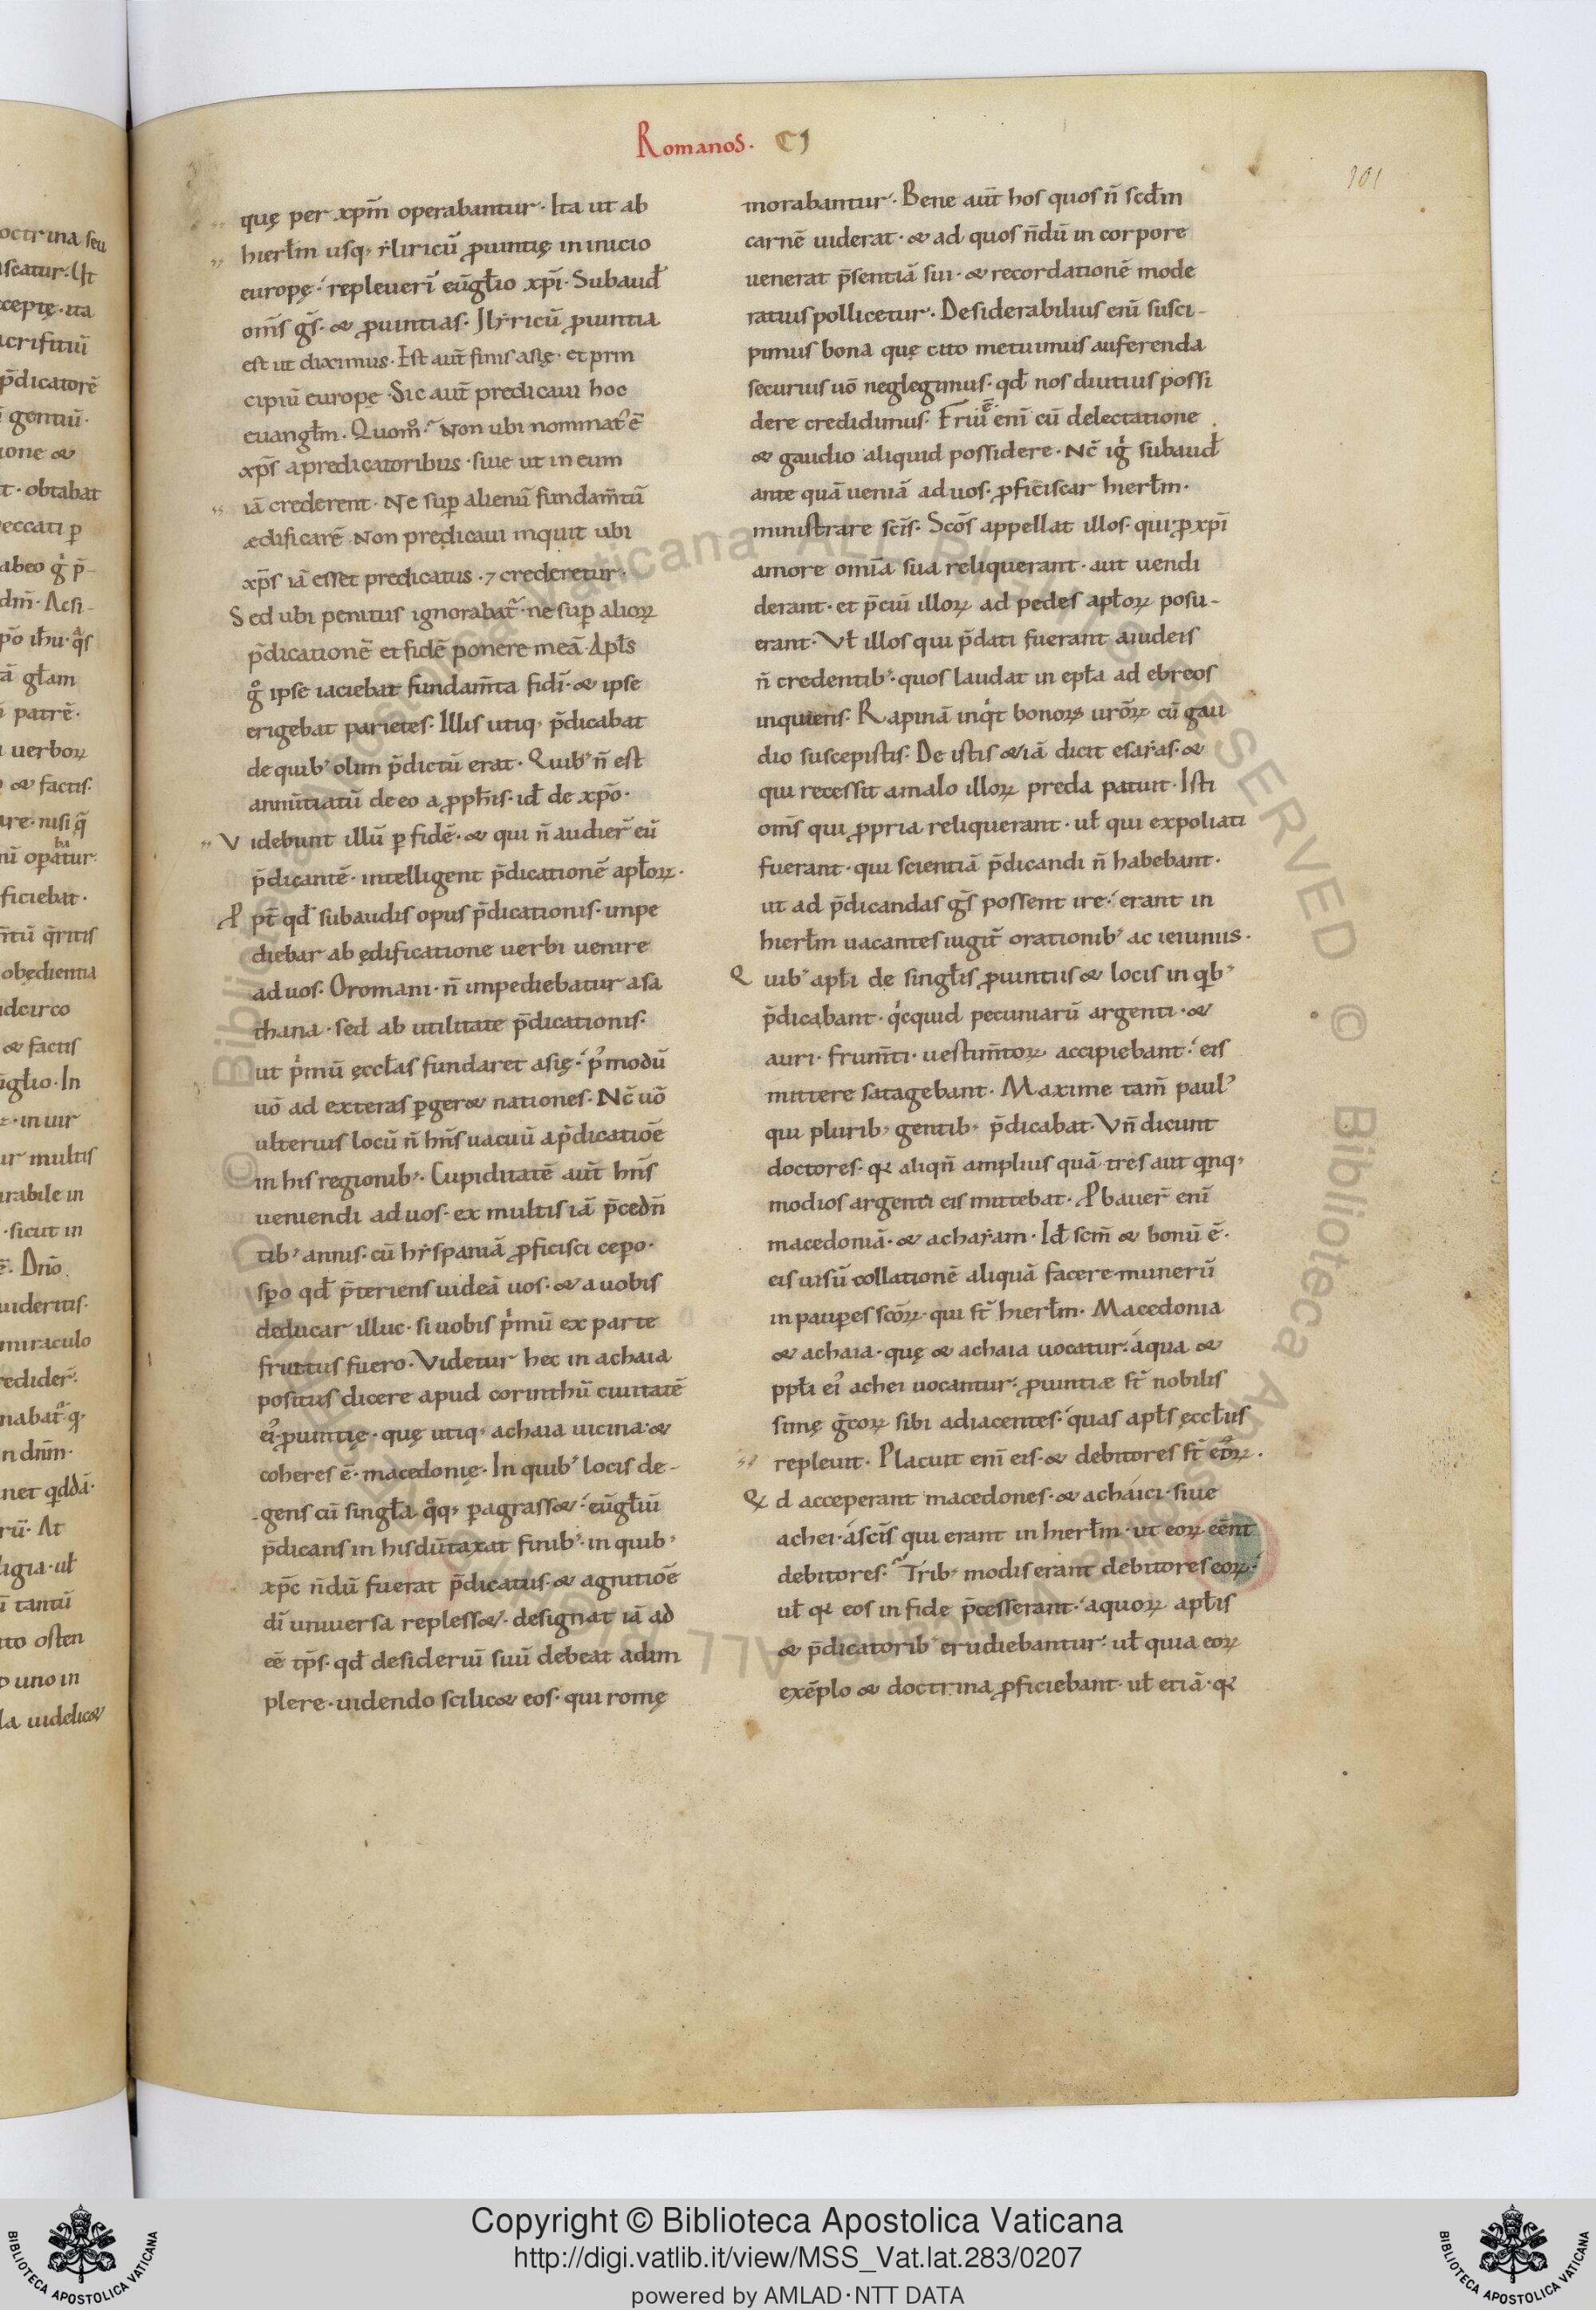 Romanos. CJ
101
quę per xp̄m operabantur. Ita ut ab
hierłm usq; ẏliricū ꝓuintię in inicio
europę. repleuerī eūgłio xp̄ı. Subaud̄
om̄s gs̄. & ꝓuintias. Jlẏricū ꝓuintia
est ut diximus. Est aut̄ finis asię. et prin
cipiū europę. Sic aut̄ predicaui hoc
euangłm. Quom̊. Non ubi nominat᷒ ē
xp̄s apredicatoribus. siue ut in eum
iā crederent. Ne suꝑ alienū fundam̄tū
ædificarē. Non predicaui inquit ubi
xp̄s iā esset predicatus. ⁊ crederetur.
Sed ubi penitus ignorabat᷑. ne suꝑ alioꝝ
p̄dicationē et fidē ponere meā. Apłs
g̊ ipse iaciebat fundam̄ta fidī. & ipse
erigebat parietes. Illis utiq; p̄dicabat
de quib᷒ olim p̄dictū erat. Quib᷒ n̄ est
annūtiatū de eo a ꝓph̄is. id̄ de xp̄o.
Videbunt illū ꝑ fidē. & qui n̄ audier̄ eū
p̄dicantē. intelligent p̄dicationē apłoꝝ.
Ꝓpt̄ qd̄ subaudis opus p̄dicationis. impe
diebar ab ędificatione uerbi uenire
ad uos. O romani. n̄ impediebatur a sa
thana. sed ab utilitate p̄dicationis.
ut pͥmū ęccłas fundaret asię. p᷒modū
uō ad exteras ꝑger& nationes. Nc̄ uō
ulterius locū n̄ hn̄s uacuū a p̄dicatiōe
in his regionib᷒. Cupiditatē aut̄ hn̄s
ueniendi ad uos. ex multis iā p̄cedn̄
tib᷒ annis. cū hẏspaniā ꝓficisci cepo.
sꝑo qd̄ p̄teriens uideā uos. & a uobis
deducar illuc. si uobis pͥmū ex parte
fruitus fuero. Videtur hec in achaia
positus dicere apud corinthū ciuitatē
ei᷒ ꝓuintię. quę utiq; achaia uicina &
coheres ē. macedonię. In quib᷒ locis de-
gens cū singła q̊q; ꝑagrass&. eūgłiū
p̄dicans in his dūtaxat finib᷒. in quib᷒
xp̄c n̄dū fuerat p̄dicatus. & agnitiōe
dī uniuersa repless&. designat iā ad
eē tp̄s. qd̄ desideriū suū debeat adim
plere. uidendo scilic& eos. qui romę
morabantur. Bene aūt hos quos n̄ scd̄m
carnē uiderat. & ad quos n̄dū in corpore
uenerat p̄sentiā sui. & recordationē mode
ratius pollicetur. Desiderabilius enī susci-
pimus bona quę cito metuimus auferenda
securius uō neglegimus. qd̄ nos diutius possi
dere credidimus. Frui ē enī cū delectatione
& gaudio aliquid possidere. Nc̄ igͥ subaud̄
ante quā ueniā ad uos. ꝓficiscar hierłm.
ministrare scīs. Scōs appellat illos. qui ꝑ xp̄ı
amore omīa sua reliquerant. aut uendi
derant. et p̄ciū illoꝝ ad pedes apłoꝝ posu-
erant. Vł illos qui p̄dati fuerant a iudeis
n̄ credentib᷒. quos laudat in epła ad ebreos
inquiens. Rapinā inqͥt bonoꝝ urōꝝ cū gau
dio suscepistis. De istis &iā dicit esaẏas. &
qui recessit a malo illoꝝ preda patuit. Isti
om̄s qui ꝓpria reliquerant. uł qui expoliati
fuerant. qui scientiā p̄dicandi n̄ habebant.
ut ad p̄dicandas gs̄ possent ire. erant in
hierłm uacantes iugit̄ orationib᷒ ac ieiuniis.
Quib᷒ apłi de singłis ꝓuintiis & locis in qͥb᷒
p̄dicabant. qͥcquid pecuniarū argenti. &
auri. frum̄ti. uestim̄toꝝ accipiebant. eis
mittere satagebant. Maxime tam̄ paul᷒
qui plurib; gentib; p̄dicabat. Vn̄ dicunt
doctores. qꝛ aliqn̄ amplius quā tres aut qͥnq;
modios argenti eis mittebat. Ꝓbauer̄ enī
macedoniā. & achaẏam. Id̄ scm̄ & bonū ē.
eis uisū collationē aliquā facere munerū
in pauꝑes scōꝝ. qui st̄ hierłm. Macedonia
& achaia. quę & achaia uocatur. a qua &
ppłi ei᷒ achei uocantur. ꝓuintiæ st̄ nobilis
simę ḡcoꝝ sibi adiacentes. quas apłs ęccłiis
repleuit. Placuit enī eis. & debitores st̄ eoꝝ.
Qd acceperant macedones. & achaici. siue
achei. a scīs qui erant in hierłm. ut eoꝝ eēnt
debitores. Trib; modis erant debitores eoꝝ.
uł qꝛ eos in fide p̄cesserant. a quoꝝ apłis
& p̄dicatorib᷒ erudiebantur. uł quia eoꝝ
exēplo & doctrina ꝓficiebant. uł etiā. qꝛ
Copyright © Biblioteca Apostolica Vaticana
http://digi.vatlib.it/view/MSS_Vat.lat.283/0207
powered by AMLAD·NTT DATA